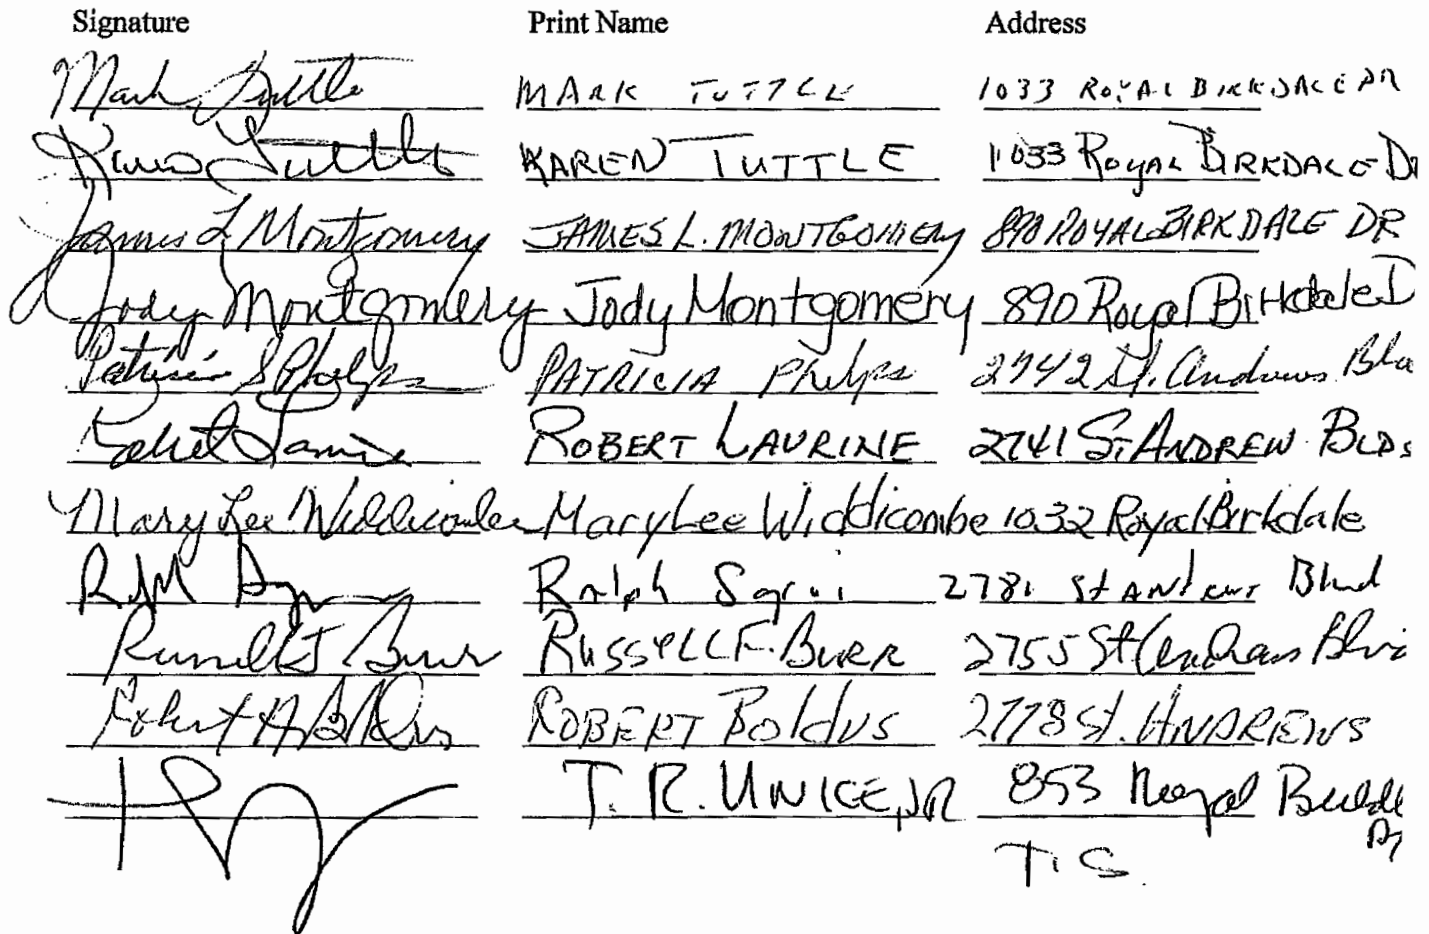 Signature Print Name Address
Mark Tuttle MARK TUTTLE 1033 ROYAL BIRKDALE DR
Karen Tuttle KAREN TUTTLE 1033 ROYAL BIRKDALE DR
James L Montgomery JAMES L. MONTGOMERY 890 ROYAL BIRKDALE DR
Jody Montgomery Jody Montgomery 890 Royal Birkdale D
Patricia S Phelps PATRICIA Phelps 2742 St. Andrews Blv
Robert Laurine ROBERT LAURINE 2741 St ANDREW BLDs
Mary Lee Widdicombe Mary Lee Widdicombe 1032 Royal Birkdale
Ralph 2781 St Andrews Blvd
Russell F Burr RUSSELL F. BURR 2755 St Andrews Blv
Robert A Boldus ROBERT BOLDUS 2778 St. ANDREWS
T. R. UNICE, JR 853 Royal
T.S.